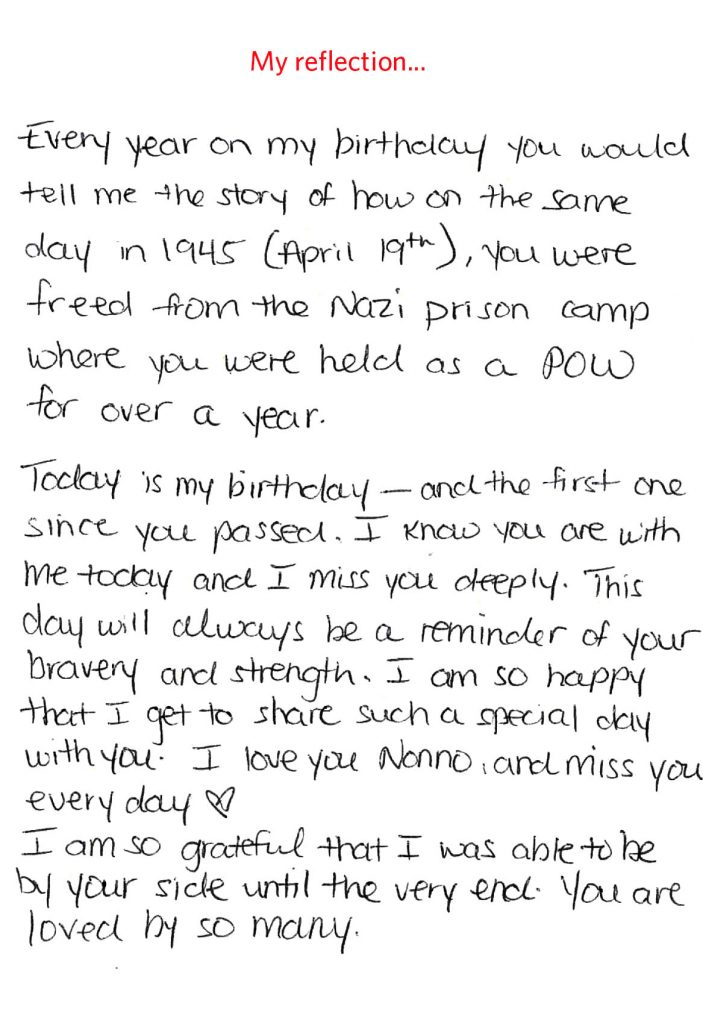 My reflection...
Every year on my birthday you would
tell me the story of how on the same
day in 1945 (April 19th), you were
freed from the Nazi prison camp
where you were held as a POW
for over a year.
Today is my birthday – and the first one
since you passed. I know you are with
me today and I miss you deeply. This
day will always be a reminder of your
bravery and strength. I am so happy
that I get to share such a special day
with you. I love you Nonno, and miss you
every day ♡
I am so grateful that I was able to be
by your side until the very end. You are
loved by so many.